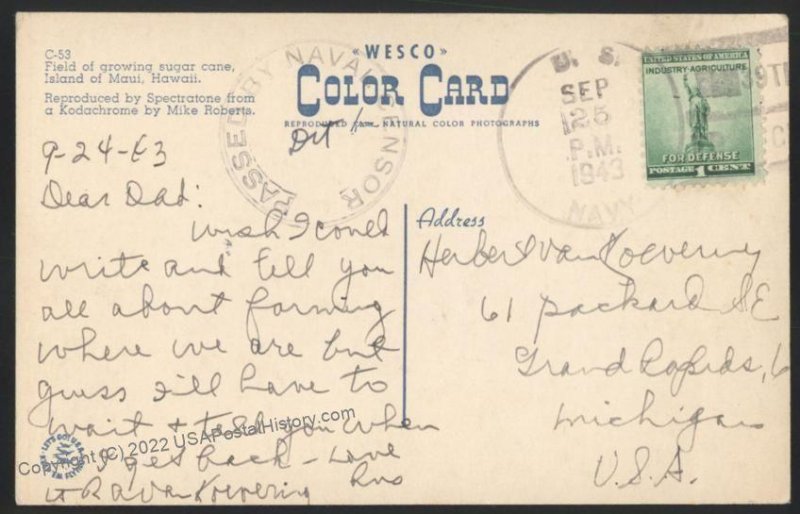 C-53
Field of growing sugar cane,
Island of Maui, Hawaii.
Reproduced by Spectratone from
a Kodachrome by Mike Roberts.
«WESCO»
COLOR CARD
REPRODUCED from NATURAL COLOR PHOTOGRAPHS
PASSED BY NAVAL CENSOR
U. S.
SEP
25
P.M.
1943
NAVY
UNITED STATES OF AMERICA
INDUSTRY-AGRICULTURE
FOR DEFENSE
POSTAGE 1 CENT
9-24-43
Dear Dad:
Wish I could
write and tell you
all about farming
where we are but
guess I'll have to
wait + tell you when
I get back - Love
Rus
Lt R a Van Koevering
Address
Herbert Van Koevering
61 Packard SE
Grand Rapids, 6
Michigan
U.S.A.
LET'S GO! U.S.A.
KEEP 'EM FLYING
Copyright (C) 2022 USAPostalHistory.com